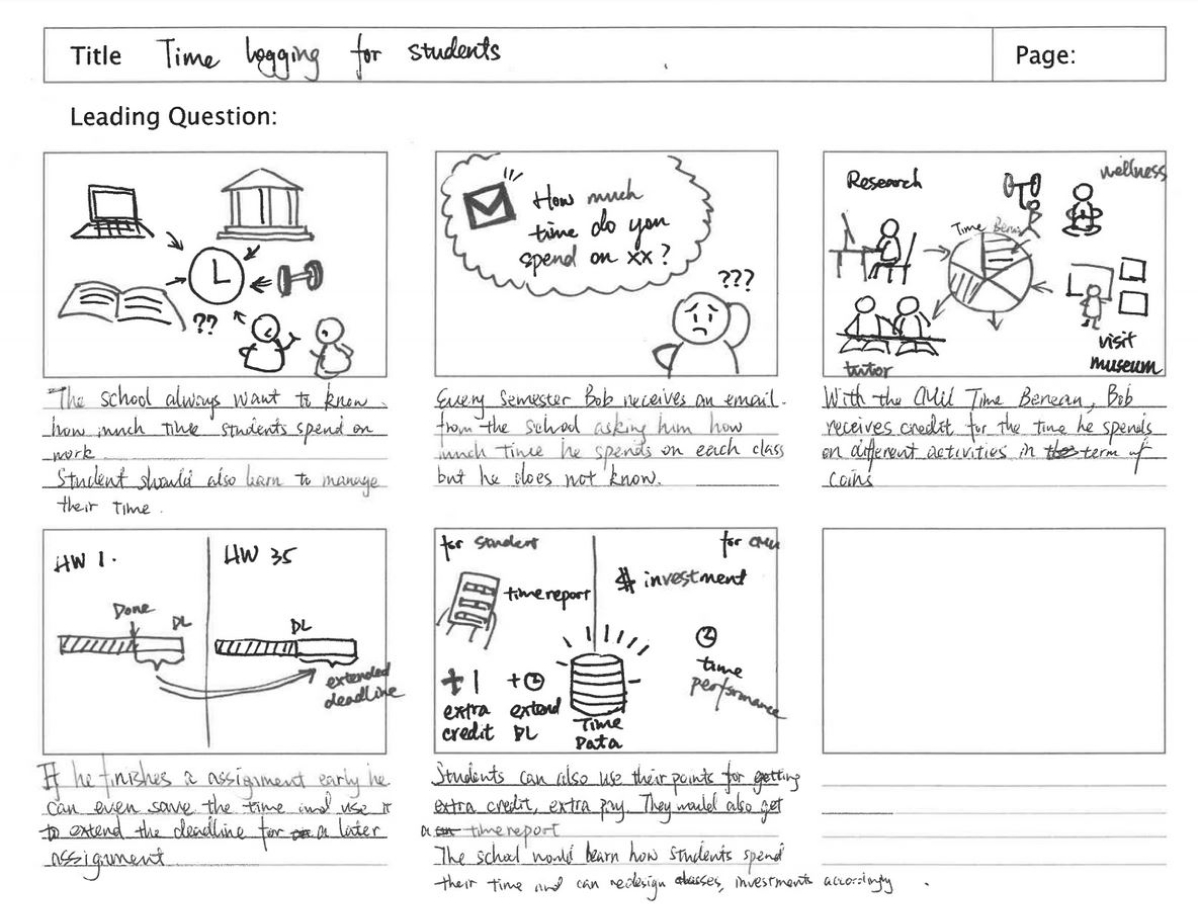 Title Time logging for students
Page:
Leading Question:
??
The school always want to know
how much time students spend on
work
Student should also learn to manage
their time.
How much
time do you
spend on xx?
???
Every semester Bob receives an email
from the school asking him how
much time he spends on each class
but he does not know.
Research
wellness
Time
tutor
visit
museum
With the CMU Time Bereau, Bob
receives credit for the time he spends
on different activities in term of
coins
HW 1.
Done
DL
HW 35
DL
extended
deadline
If he finishes a assignment early he
can even save the time and use it
to extend the deadline for a later
assignment
for student
time report
+1
extra
credit
+
extend
DL
Time
Data
for CMU
$ investment
time
performance
Students can also use their points for getting
extra credit, extra pay. They would also get
a time report
The school would learn how students spend
their time and can redesign classes, investments accordingly.